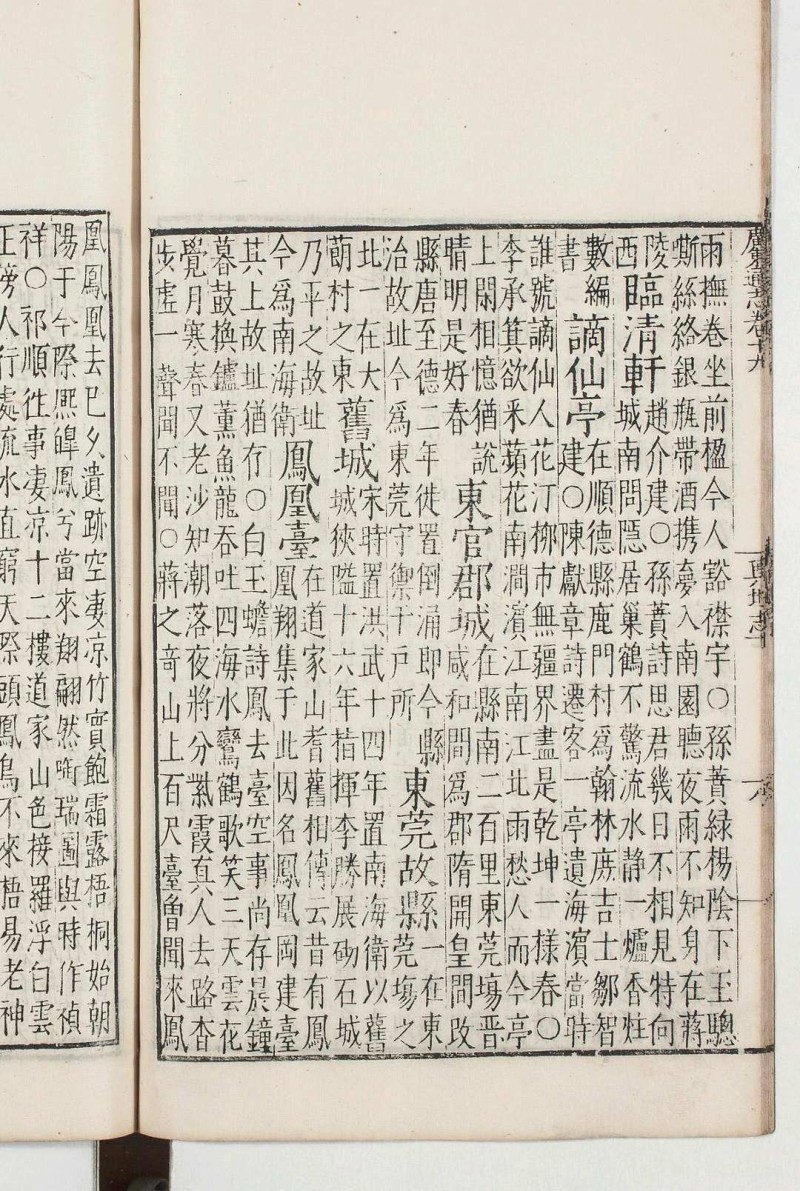 雨撫卷坐前楹今人豁襟宇○孫蕡緑楊陰下玉驄
嘶絲絡銀瓶帶酒携夣入南園聽夜雨不知身在蔣
陵西臨清軒趙介建○孫蕡詩思君幾日不相見特向
城南問隱居巢鶴不驚流水静一爐香炷
數編書謫仙亭在順德縣鹿門村爲翰林庶吉士鄒智
建○陳獻章詩遷客一亭遺海濱當時
誰號謫仙人花汀柳市無疆界盡是乾坤一樣春○
李承箕欲采蘋花南澗濱江南江北雨愁人而今亭
上閑相憶猶說
晴明是好春東官郡城在縣南二百里東莞塲晋
咸和間爲郡隋開皇間改
縣唐至德二年徙置倒涌即今縣
治故址今爲東莞守禦千户所東莞故縣一在東
莞塲之
北一在大
萌村之東舊城宋時置洪武十四年置南海衛以舊
城狹隘十六年指揮李勝展砌石城
乃平之故址
今爲南海衛鳳凰臺在道家山耆舊相傳云昔有鳳
凰翔集于此因名鳳凰岡建臺
其上故址猶存○白玉蟾詩鳳去臺空事尚存晨鐘
暮鼓換鑪薰魚龍吞吐四海水鸞鶴歌笑三天雲花
覺月寒春又老沙知潮落夜將分紫霞真人去路杳
步虚一聲聞不聞○蔣之奇山上百尺臺魯聞來鳳
凰鳳凰去巳久遺跡空凄凉竹實飽霜露梧桐始朝
陽于今際熙皥鳳兮當來翔翩然啣瑞圖與時作禎
祥○祁順徃事凄凉十二樓道家山色接羅浮白雲
正傍人行處流水直窮天際頭鳳鳥不來梧易老神